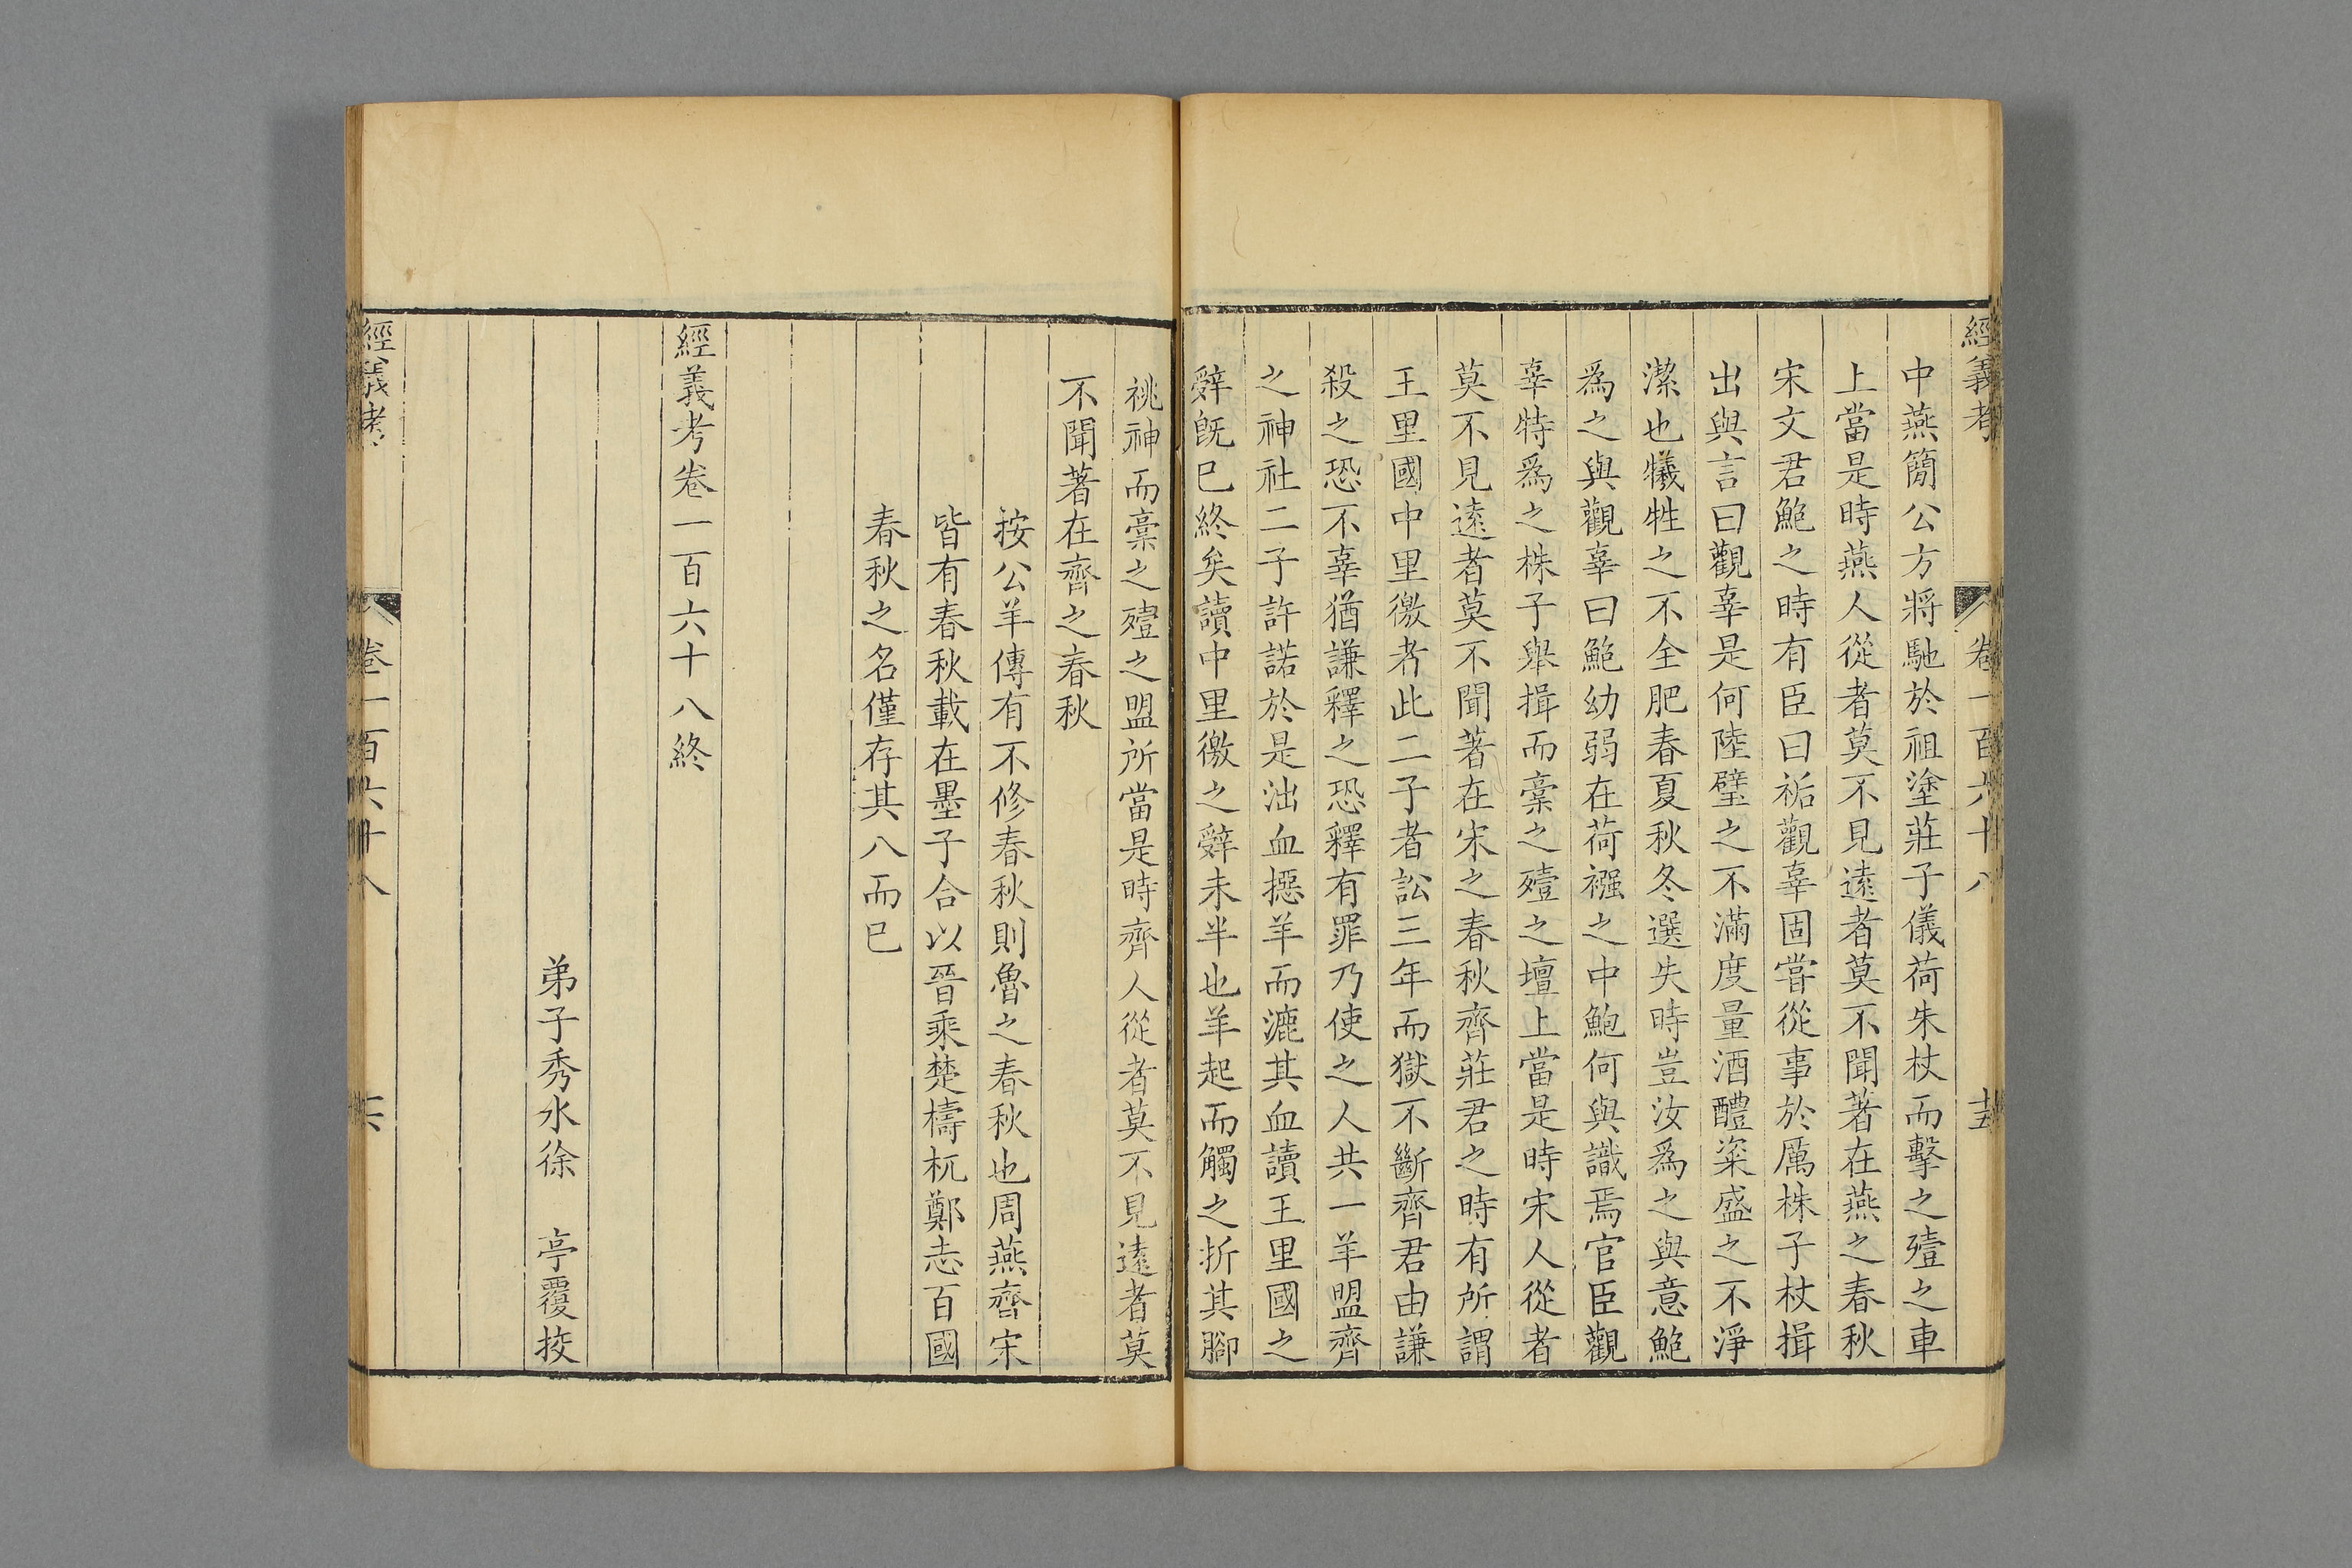 經義考 卷一百六十八 十五
中燕簡公方將馳於祖塗莊子儀荷朱杖而擊之殪之車
上當是時燕人從者莫不見遠者莫不聞著在燕之春秋
宋文君鮑之時有臣曰祏觀辜固嘗從事於厲株子杖揖
出與言曰觀辜是何陸璧之不滿度量酒醴粢盛之不淨
潔也犧牲之不全肥春夏秋冬選失時豈汝爲之與意鮑
爲之與觀辜曰鮑幼弱在荷襁之中鮑何與識焉官臣觀
辜特爲之株子舉揖而槀之殪之壇上當是時宋人從者
莫不見遠者莫不聞著在宋之春秋齊莊君之時有所謂
王里國中里徼者此二子者訟三年而獄不斷齊君由謙
殺之恐不辜猶謙釋之恐釋有罪乃使之人共一羊盟齊
之神社二子許諾於是泏血摁羊而漉其血讀王里國之
辭旣已終矣讀中里徼之辭未半也羊起而觸之折其腳
祧神而槀之殪之盟所當是時齊人從者莫不見遠者莫
不聞著在齊之春秋
按公羊傳有不修春秋則魯之春秋也周燕齊宋
皆有春秋載在墨子合以晉乘楚檮杌鄭志百國
春秋之名僅存其八而已
經義考卷一百六十八終
弟子秀水徐 亭覆挍
經義考 卷一百六十八